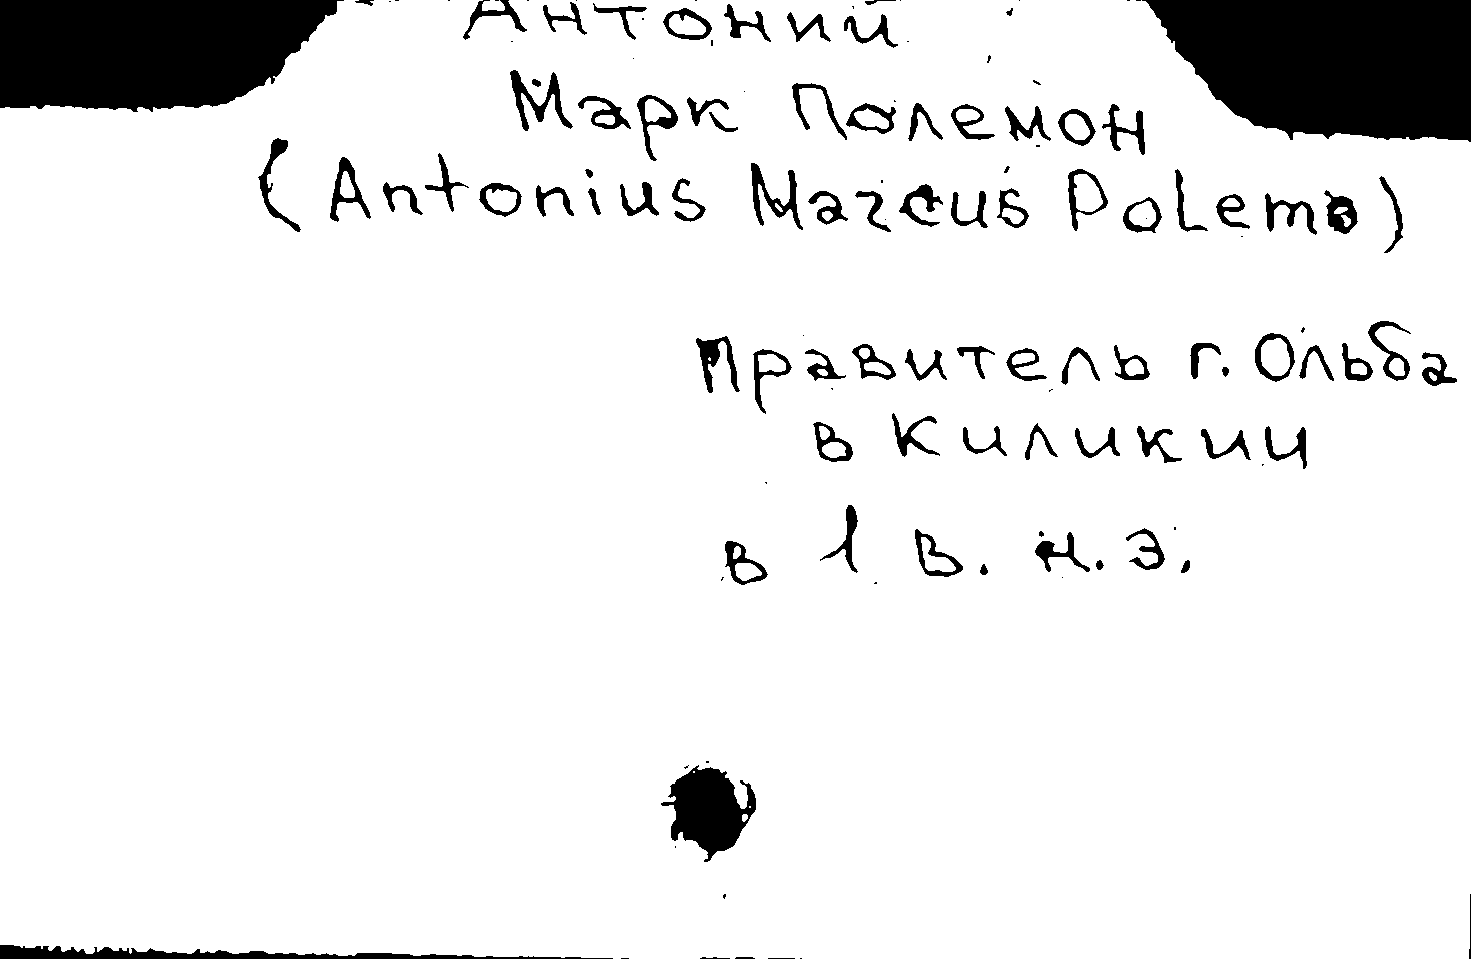 Антоний
Марк Полемон
(Antonius Marcus Polemo)
правитель г. Ольба
в Киликии
в 1 в. н.э.